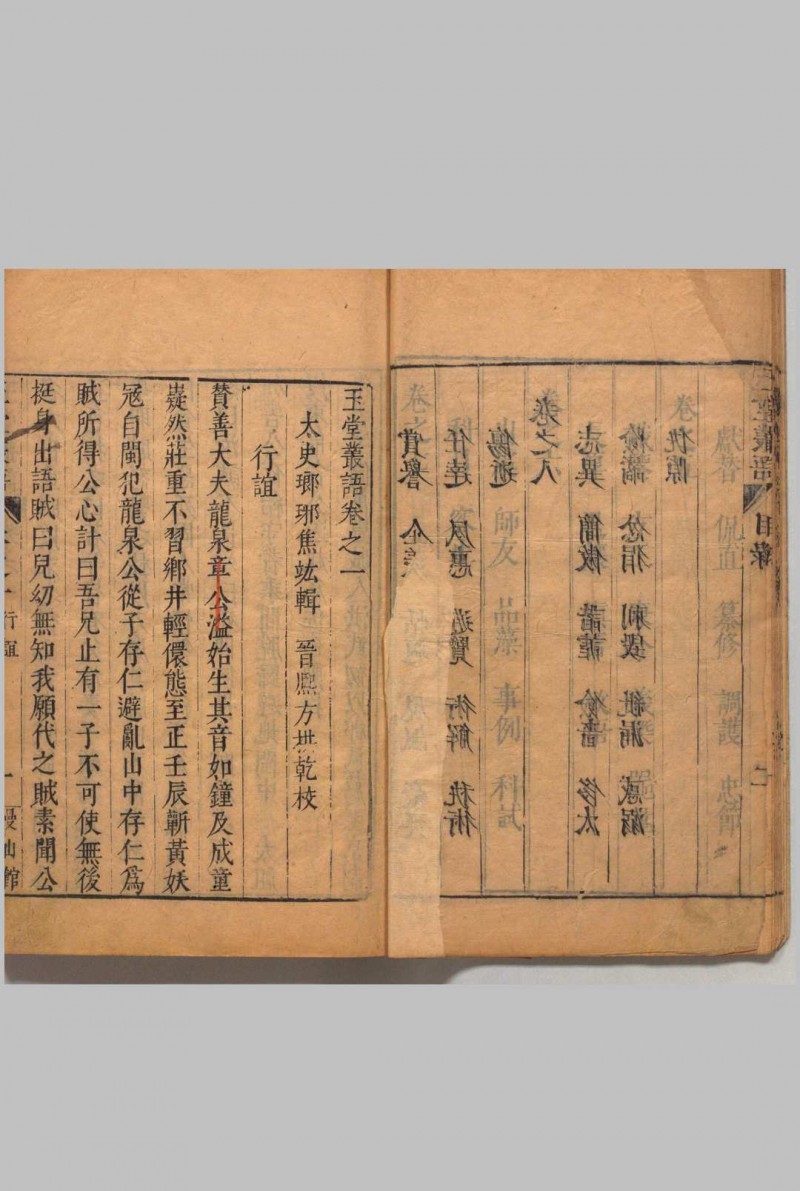 玉堂叢語 目錄
獻替 侃直 纂修 調護 忠節
仇隙
險譎 忿狷 刺毀 紕漏 惑溺
志異 簡傲 諧謔 儉嗇 侈汰
卷之八
傷逝
師友 品藻 事例 科試
任達 夙惠 遊覽 術解
賞譽 企羨
玉堂叢語卷之一
太史瑯琊焦竑輯 晉熈方拱乾校
行誼
贊善大夫龍泉章公溢始生其音如鐘及成童
嶷然莊重不習鄉井輕儇態至正壬辰蘄黃妖
冦自閩犯龍泉公從子存仁避亂山中存仁爲
賊所得公心計曰吾兄止有一子不可使無後
挺身出語賊曰兒幼無知我願代之賊素聞公
行誼 一 曼山館